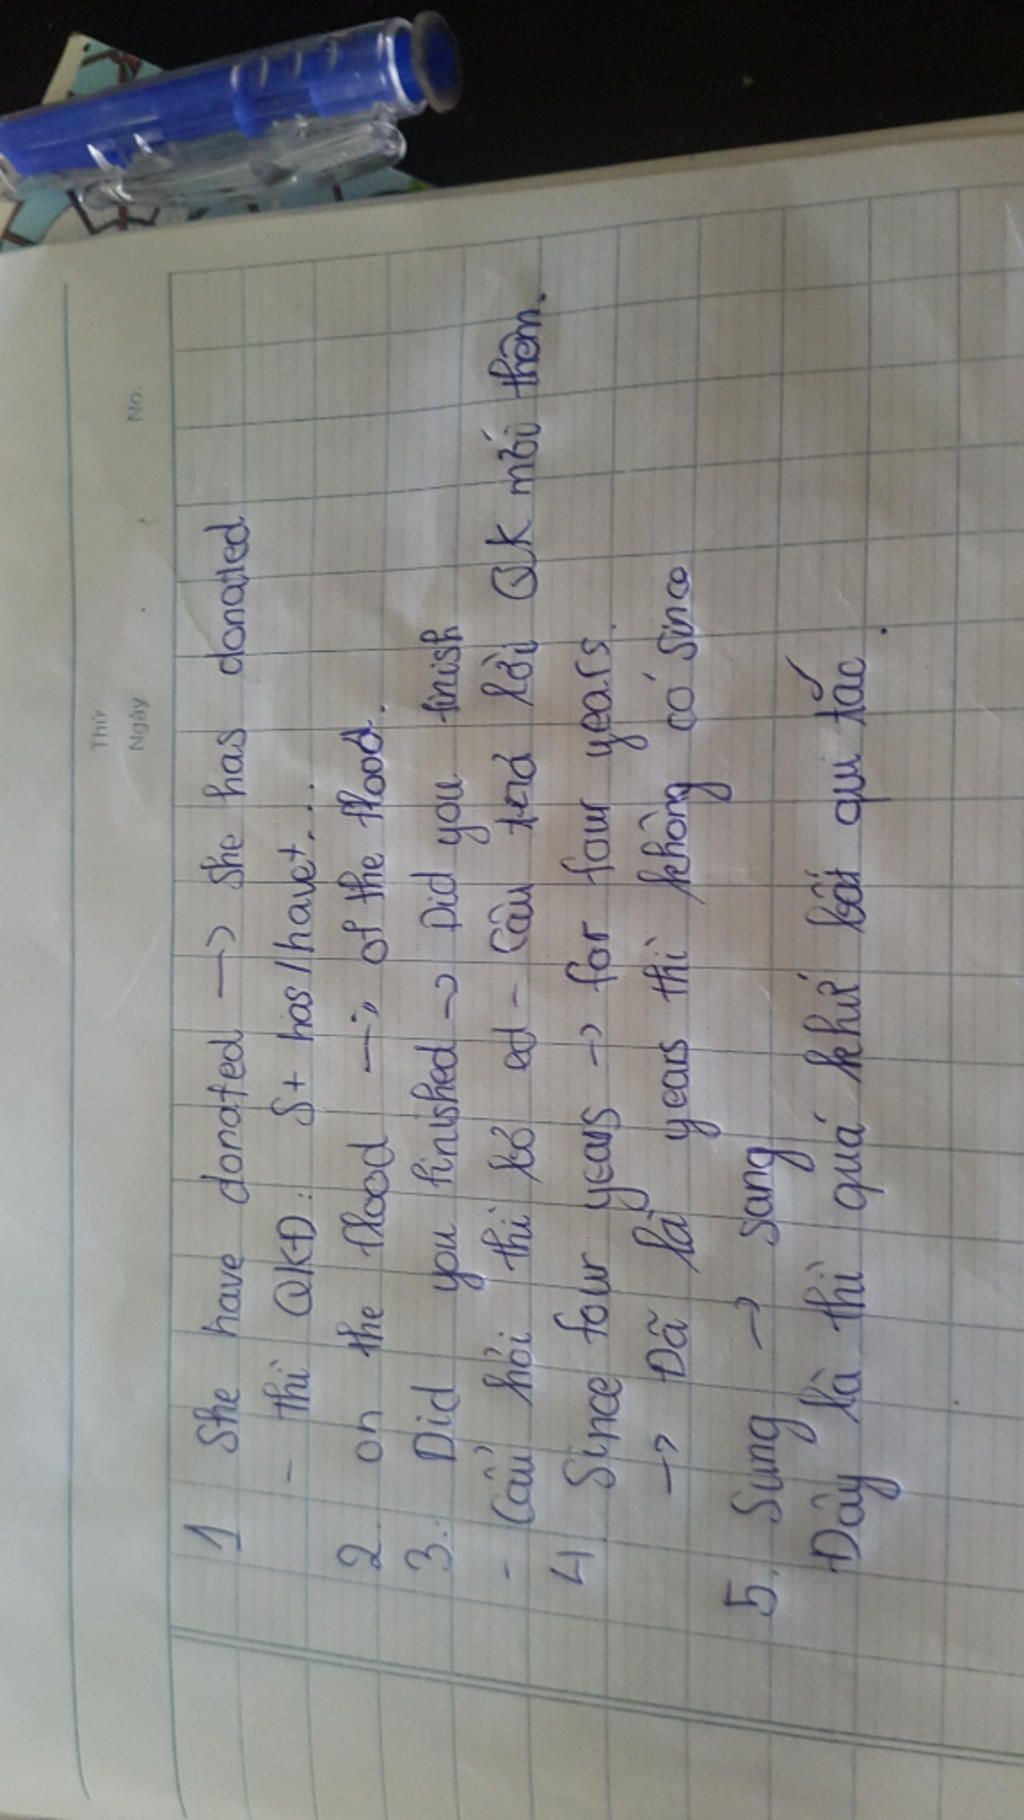 Thứ
Ngày No.
1 She have donated → She has donated
- thì QKĐ: S+ has/have+...
2 on the flood → of the flood.
3. Did you finished → Did you finish
- Câu hỏi thì bỏ ed - Câu trả lời QK mới thêm.
4 Since four years → for four years.
→ Đã là years thì không có since
5. Sung → sang
Đây là thì quá khứ bất qui tắc.